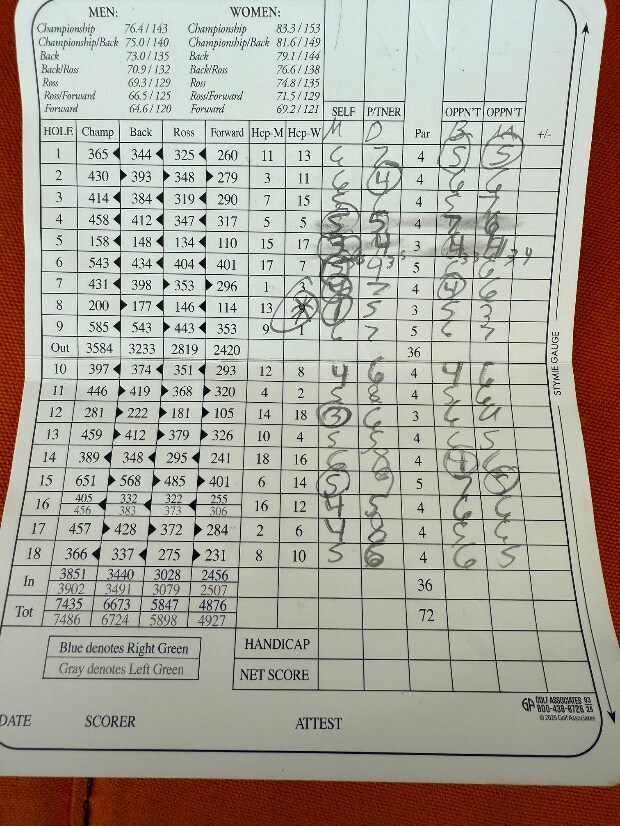 MEN: WOMEN:
Championship 76.4 / 143 Championship 83.3 / 153
Championship/Back 75.0 / 140 Championship/Back 81.6 / 149
Back 73.0 / 135 Back 79.1 / 144
Back/Ross 70.9 / 132 Back/Ross 76.6 / 138
Ross 69.3 / 129 Ross 74.8 / 135
Ross/Forward 66.5 / 125 Ross/Forward 71.5 / 129
Forward 64.6 / 120 Forward 69.2 / 121
SELF P/TNER OPPN'T OPPN'T
HOLE Champ Back Ross Forward Hcp-M Hcp-W M D Par B +/-
1 365 344 325 260 11 13 6 7 4 5 5
2 430 393 348 279 3 11 6 4 4 6 6
3 414 384 319 290 7 15 5 6 4 5 7
4 458 412 347 317 5 5 5 5 4 7 6
5 158 148 134 110 15 17 3 4 3 4 4
6 543 434 404 401 17 7 5 6
7 431 398 353 296 1 3 4 7 4 4 6
8 200 177 146 114 13 9 5 3 5 3
9 585 543 443 353 9 1 6 7 5 6 7
Out 3584 3233 2819 2420 36
10 397 374 351 293 12 8 4 6 4 4 6
11 446 419 368 320 4 2 5 8 4 5 6
12 281 222 181 105 14 18 3 6 3 6 4
13 459 412 379 326 10 4 5 5 4 6 5
14 389 348 295 241 18 16 6 8 4 4 6
15 651 568 485 401 6 14 5 5 7 5
16 405 332 322 255 16 12 4 5 4 6 6
456 383 373 306
17 457 428 372 284 2 6 4 8 4 5 6
18 366 337 275 231 8 10 5 6 4 6 5
In 3851 3440 3028 2456 36
3902 3491 3079 2507
Tot 7435 6673 5847 4876 72
7486 6724 5898 4927
Blue denotes Right Green
Gray denotes Left Green
HANDICAP
NET SCORE
STYMIE GAUGE
GA GOLF ASSOCIATES 93
800-438-8726 25
© 2025 Golf Associates
DATE SCORER ATTEST